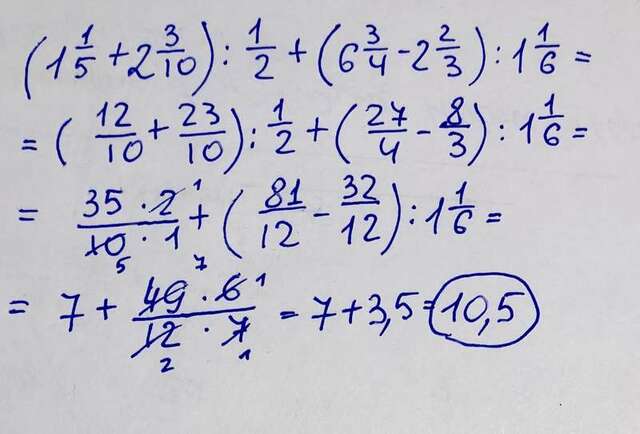 (1 1/5 + 2 3/10) : 1/2 + (6 3/4 - 2 2/3) : 1 1/6 =
= (12/10 + 23/10) : 1/2 + (27/4 - 8/3) : 1 1/6 =
= 35 · 2 1 / 10 5 · 1 + (81/12 - 32/12) : 1 1/6 =
= 7 + 49 7 · 6 1 / 12 2 · 7 1 = 7 + 3,5 = 10,5